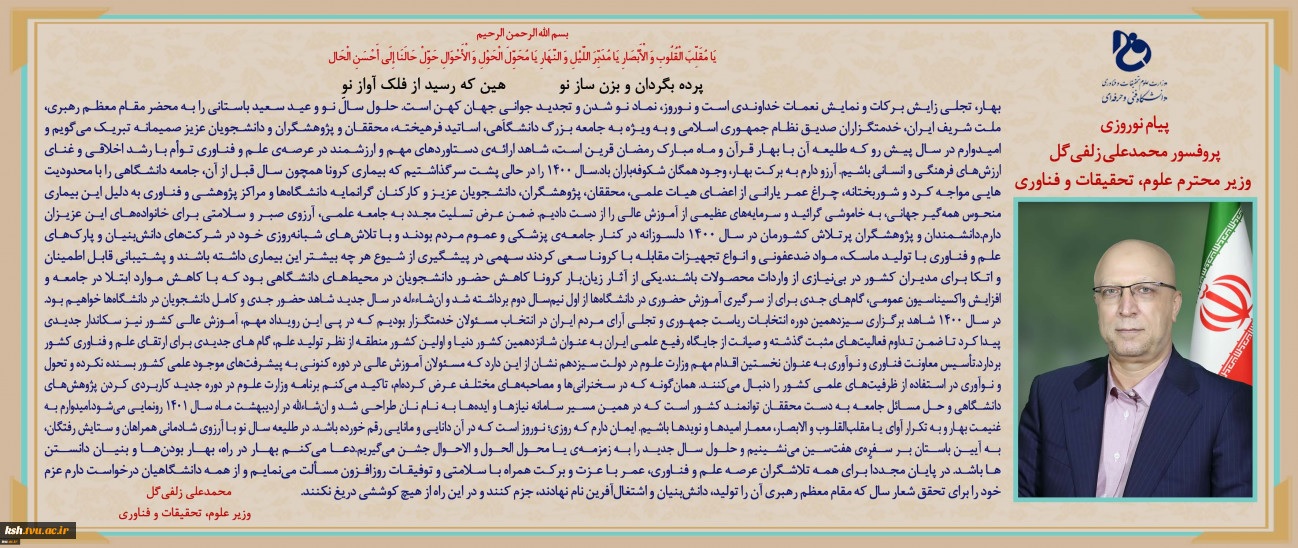 بسم الله الرحمن الرحیم
یَا مُقَلِّبَ الْقُلُوبِ وَ الْأَبْصَارِ یَا مُدَبِّرَ اللَّیْلِ وَ النَّهَارِ یَا مُحَوِّلَ الْحَوْلِ وَ الْأَحْوَالِ حَوِّلْ حَالَنَا إِلَى أَحْسَنِ الْحَالِ
پرده بگردان و بزن ساز نو هین که رسید از فلک آواز نو
بهار، تجلی زایش برکات و نمایش نعمات خداوندی است و نوروز، نماد نو شدن و تجدید جوانی جهان کهن است. حلول سال نو و عید سعید باستانی را به محضر مقام معظم رهبری،
ملت شریف ایران، خدمتگزاران صدیق نظام جمهوری اسلامی و به ویژه به جامعه بزرگ دانشگاهی، اساتید فرهیخته، محققان و پژوهشگران و دانشجویان عزیز صمیمانه تبریک می‌گویم و
امیدوارم در سال پیش رو که طلیعه آن با بهار قرآن و ماه مبارک رمضان قرین است، شاهد ارائه‌ی دستاوردهای مهم و ارزشمند در عرصه‌ی علم و فناوری توأم با رشد اخلاقی و غنای
ارزش‌های فرهنگی و انسانی باشیم. آرزو دارم به برکت بهار، وجود همگان شکوفه‌باران باد.سال ۱۴۰۰ را در حالی پشت سرگذاشتیم که بیماری کرونا همچون سال قبل از آن، جامعه دانشگاهی را با محدودیت
هایی مواجه کرد و شوربختانه، چراغ عمر یارانی از اعضای هیات علمی، محققان، پژوهشگران، دانشجویان عزیز و کارکنان گرانمایه دانشگاه‌ها و مراکز پژوهشی و فناوری به دلیل این بیماری
منحوس همه‌گیر جهانی، به خاموشی گرائید و سرمایه‌های عظیمی از آموزش عالی را از دست دادیم. ضمن عرض تسلیت مجدد به جامعه علمی، آرزوی صبر و سلامتی برای خانواده‌های این عزیزان
دارم.دانشمندان و پژوهشگران پرتلاش کشورمان در سال ۱۴۰۰ دلسوزانه در کنار جامعه‌ی پزشکی و عموم مردم بودند و با تلاش‌های شبانه‌روزی خود در شرکت‌های دانش‌بنیان و پارک‌های
علم و فناوری با تولید ماسک، مواد ضدعفونی و انواع تجهیزات مقابله با کرونا سعی کردند سهمی در پیشگیری از شیوع هر چه بیشتر این بیماری داشته باشند و پشتیبانی قابل اطمینان
و اتکا برای مدیران کشور در بی‌نیازی از واردات محصولات باشند.یکی از آثار زیان‌بار کرونا کاهش حضور دانشجویان در محیط‌های دانشگاهی بود که با کاهش موارد ابتلا در جامعه و
افزایش واکسیناسیون عمومی، گام‌های جدی برای از سرگیری آموزش حضوری در دانشگاه‌ها از اول نیم‌سال دوم برداشته شد و ان‌شاءله در سال جدید شاهد حضور جدی و کامل دانشجویان در دانشگاه‌ها خواهیم بود.
در سال ۱۴۰۰ شاهد برگزاری سیزدهمین دوره انتخابات ریاست جمهوری و تجلی آرای مردم ایران در انتخاب مسئولان خدمتگزار بودیم که در پی این رویداد مهم، آموزش عالی کشور نیز سکاندار جدیدی
پیدا کرد تا ضمن تداوم فعالیت‌های مثبت گذشته و صیانت از جایگاه رفیع علمی ایران به عنوان شانزدهمین کشور دنیا و اولین کشور منطقه از نظر تولید علم، گام های جدیدی برای ارتقای علم و فناوری کشور
بردارد.تأسیس معاونت فناوری و نوآوری به عنوان نخستین اقدام مهم وزارت علوم در دولت سیزدهم نشان از این دارد که مسئولان آموزش عالی در دوره کنونی به پیشرفت‌های موجود علمی کشور بسنده نکرده و تحول
و نوآوری در استفاده از ظرفیت‌های علمی کشور را دنبال می‌کنند. همان‌گونه که در سخنرانی‌ها و مصاحبه‌های مختلف عرض کرده‌ام، تاکید می‌کنم برنامه وزارت علوم در دوره جدید کاربردی کردن پژوهش‌های
دانشگاهی و حل مسائل جامعه به دست محققان توانمند کشور است که در همین مسیر سامانه نیازها و ایده‌ها به نام نان طراحی شد و ان‌شاءلله در اردیبهشت ماه سال ۱۴۰۱ رونمایی می‌شود.امیدوارم به
غنیمت بهار و به تکرار آوای یا مقلب‌القلوب و الابصار، معمار امیدها و نویدها باشیم. ایمان دارم که روزی؛ نوروز است که در آن دانایی و مانایی رقم خورده باشد. در طلیعه سال نو با آرزوی شادمانی همراهان و ستایش رفتگان،
به آیین باستان بر سفره‌ی هفت‌سین می‌نشینیم و حلول سال جدید را به زمزمه‌ی یا محول الحول و الاحوال جشن می‌گیریم.دعا می‌کنم بهار در راه، بهار بودن‌ها و بنیان دانستن
ها باشد. در پایان مجددا برای همه تلاشگران عرصه علم و فناوری، عمر با عزت و برکت همراه با سلامتی و توفیقات روزافزون مسألت می‌نمایم و از همه دانشگاهیان درخواست دارم عزم
خود را برای تحقق شعار سال که مقام معظم رهبری آن را تولید، دانش‌بنیان و اشتغال‌آفرین نام نهادند، جزم کنند و در این راه از هیچ کوششی دریغ نکنند.
محمدعلی زلفی‌گل
وزیر علوم، تحقیقات و فناوری
وزارت علوم، تحقیقات و فناوری
دانشگاه فنی و حرفه‌ای
پیام نوروزی
پروفسور محمدعلی زلفی‌گل
وزیر محترم علوم، تحقیقات و فناوری
ksh.tvu.ac.ir